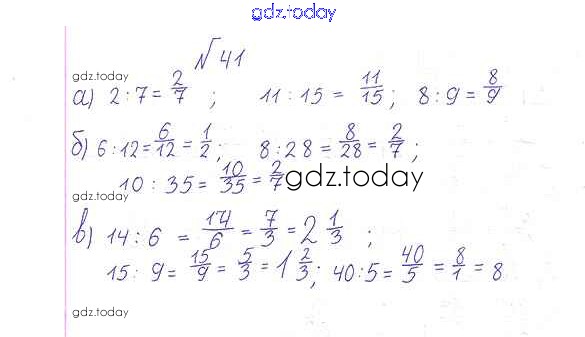 gdz.today
№ 41
gdz.today
а) 2 : 7 = 2/7 ; 11 : 15 = 11/15 ; 8 : 9 = 8/9
б) 6 : 12 = 6/12 = 1/2 ; 8 : 28 = 8/28 = 2/7 ;
10 : 35 = 10/35 = 2/7
gdz.today
gdz.today
в) 14 : 6 = 14/6 = 7/3 = 2 1/3 ;
15 : 9 = 15/9 = 5/3 = 1 2/3 ; 40 : 5 = 40/5 = 8/1 = 8
gdz.today